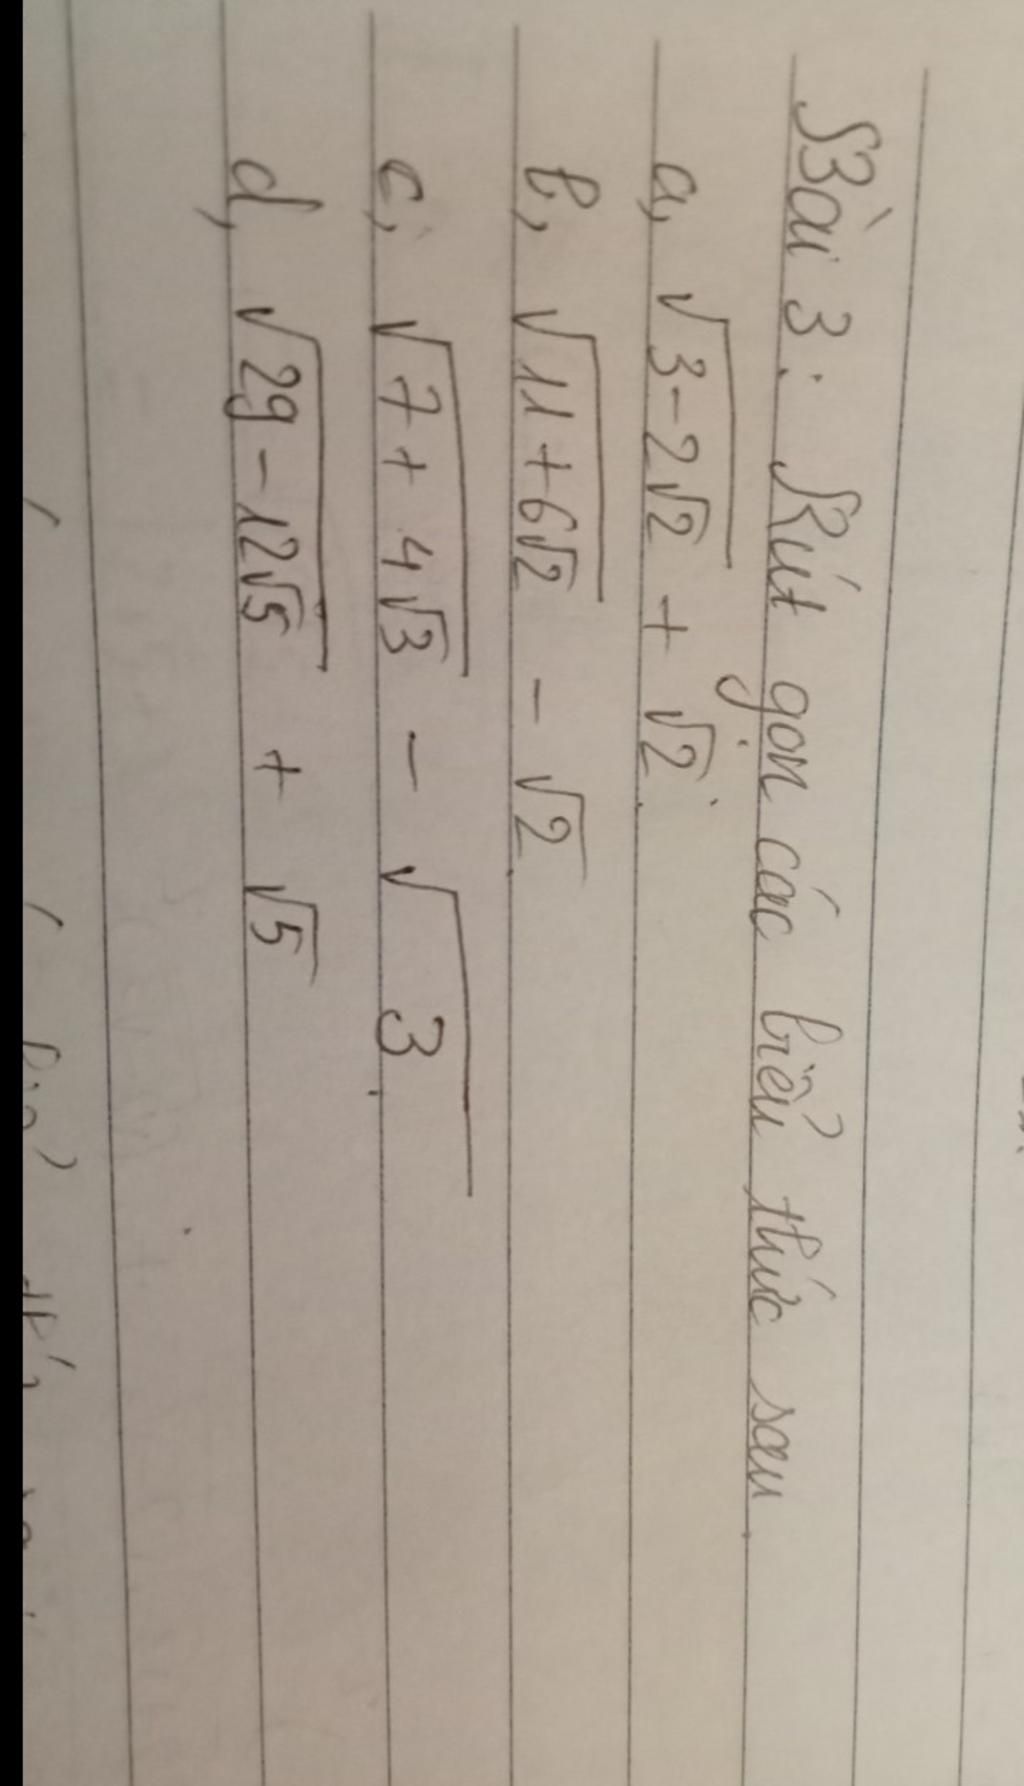 Bài 3: Rút gọn các biểu thức sau
a, √(3-2√2) + √2.
b, √(11+6√2) - √2
c, √(7+4√3) - √3
d, √(29-12√5) + √5